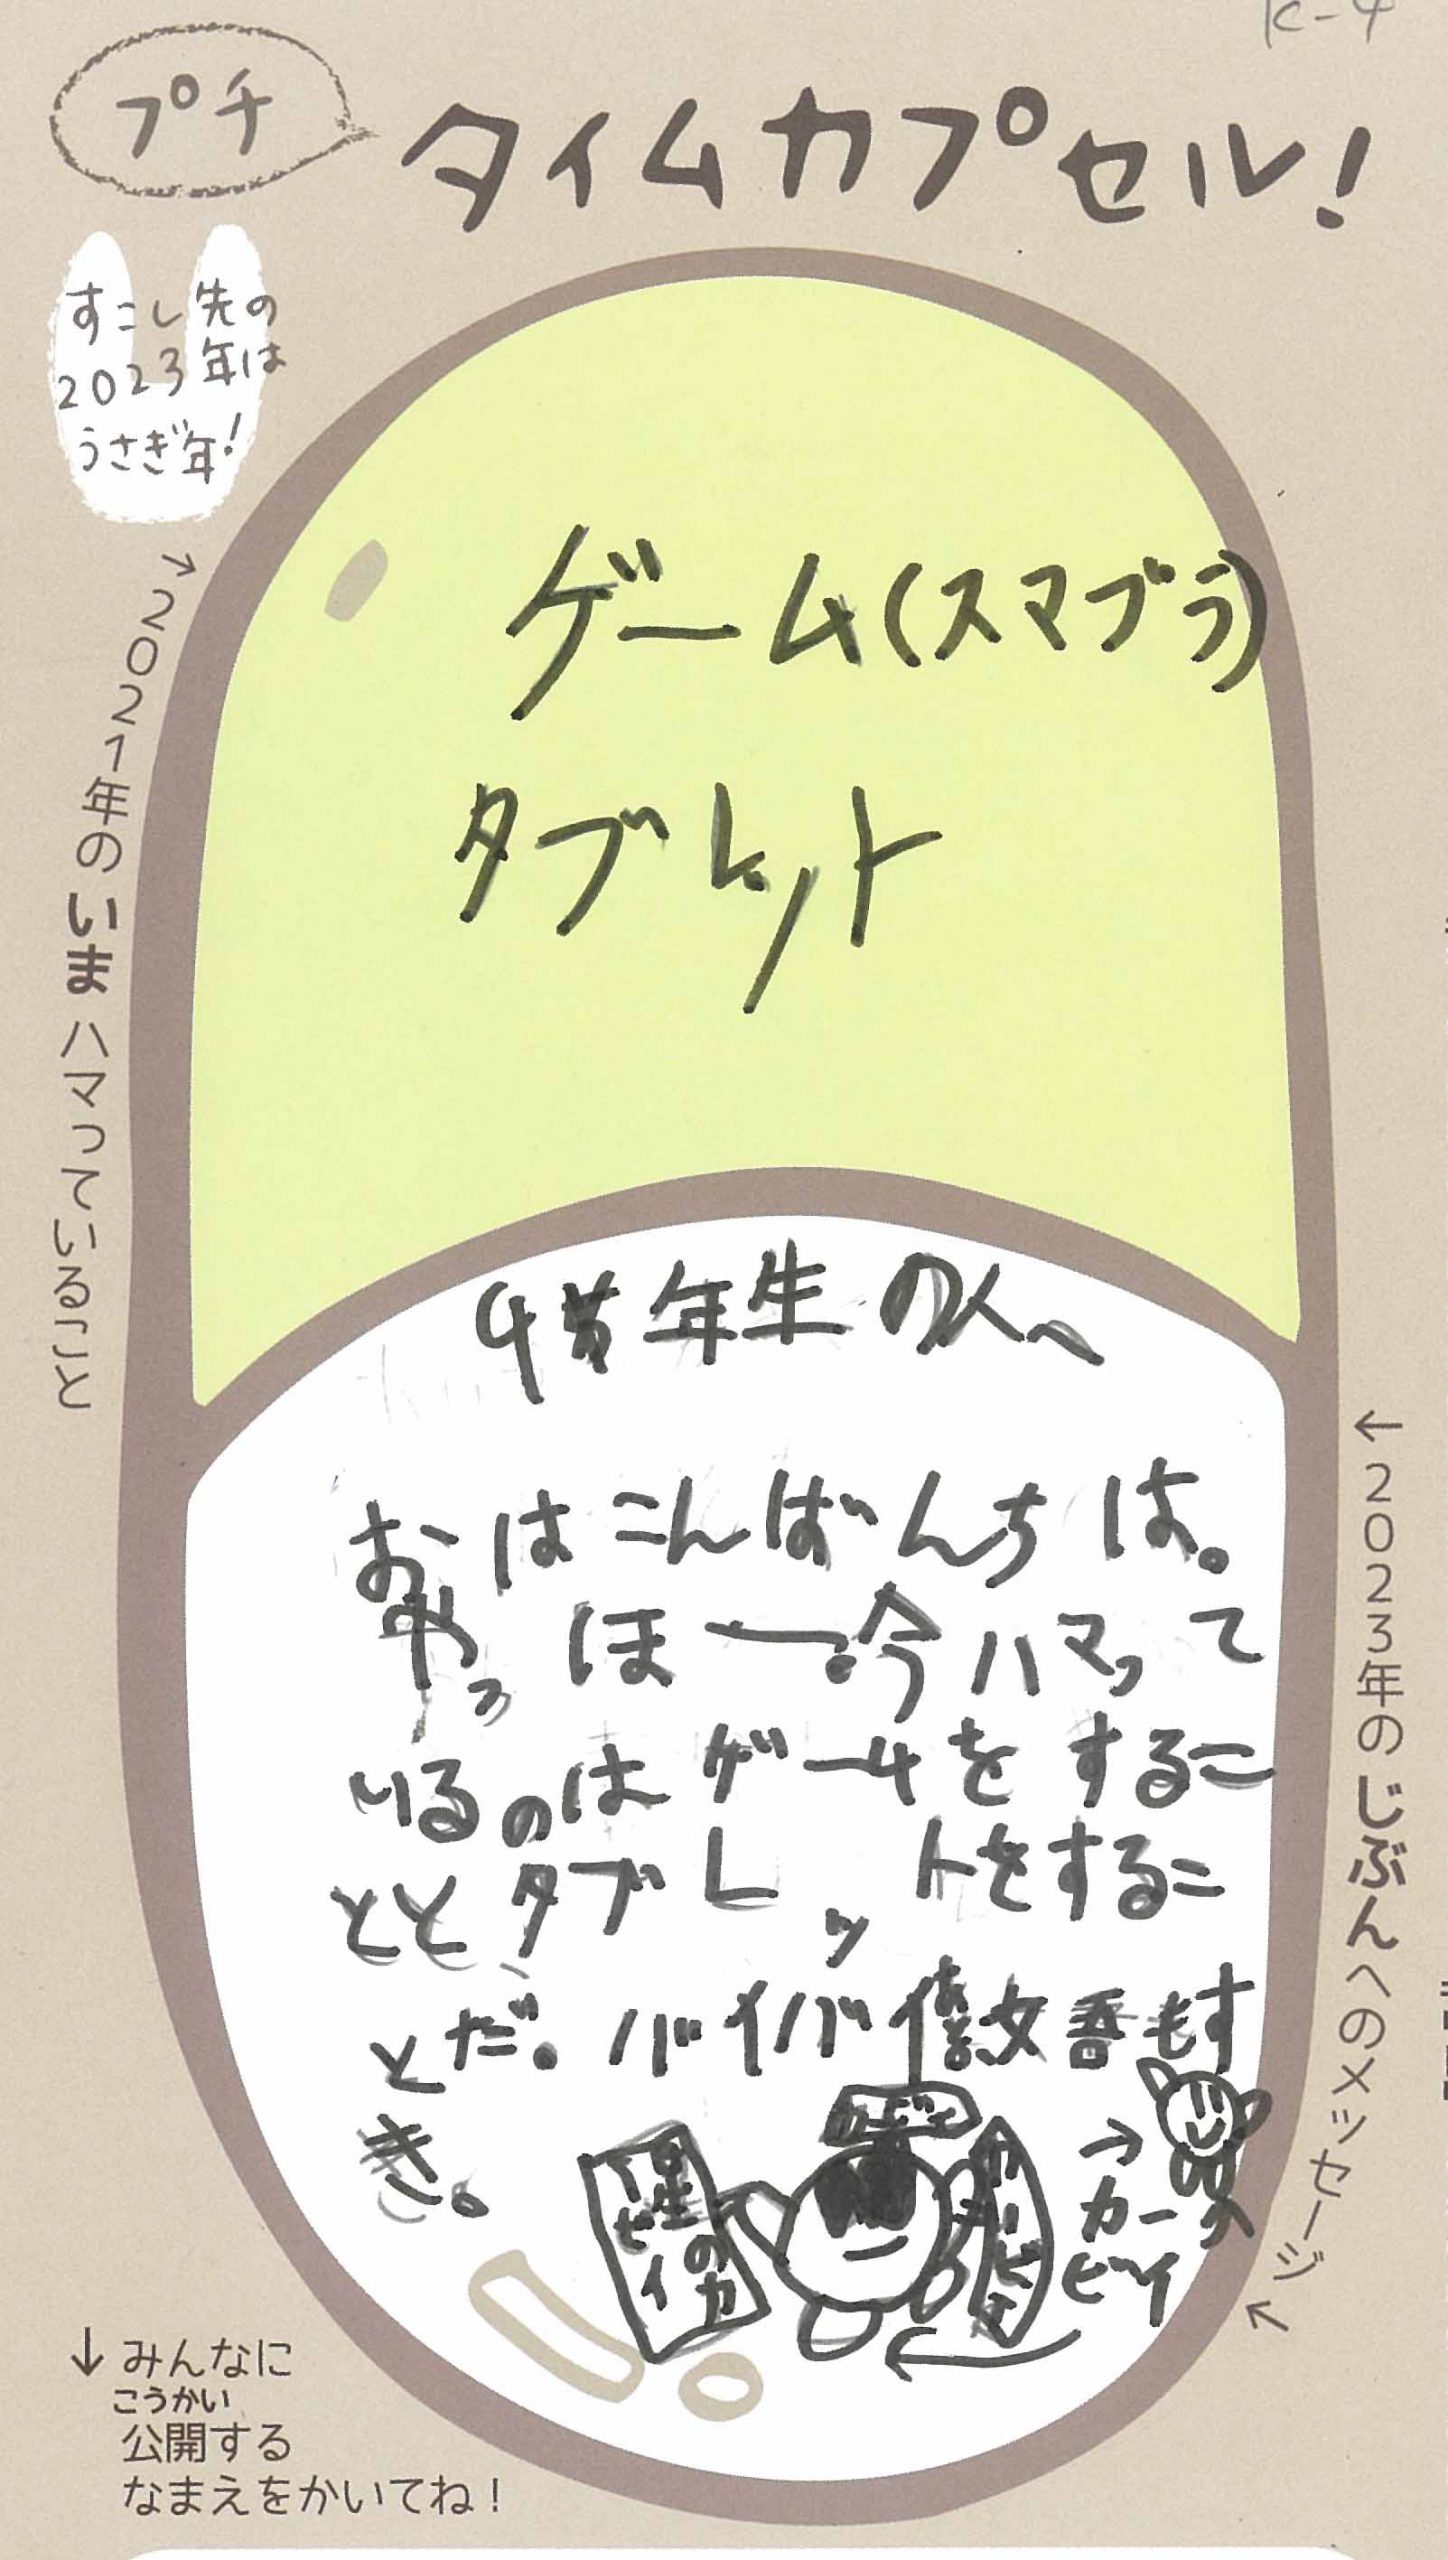 K-4
プチ
タイムカプセル!
すこし先の
2023年は
うさぎ年!
→2021年のいまハマっていること
ゲーム(スマブラ)
タブレット
年生の人へ
おはこんばんちは。
やっほー。今ハマって
いるのはゲームをするこ
ととタブレットをするこ
とだ。バイバイ 文吾もす
き。
星のカ
ービィ
カービィ
カービィ
→カー
ビィ
←2023年のじぶんへのメッセージ
↓みんなに
こうかい
公開する
なまえをかいてね!